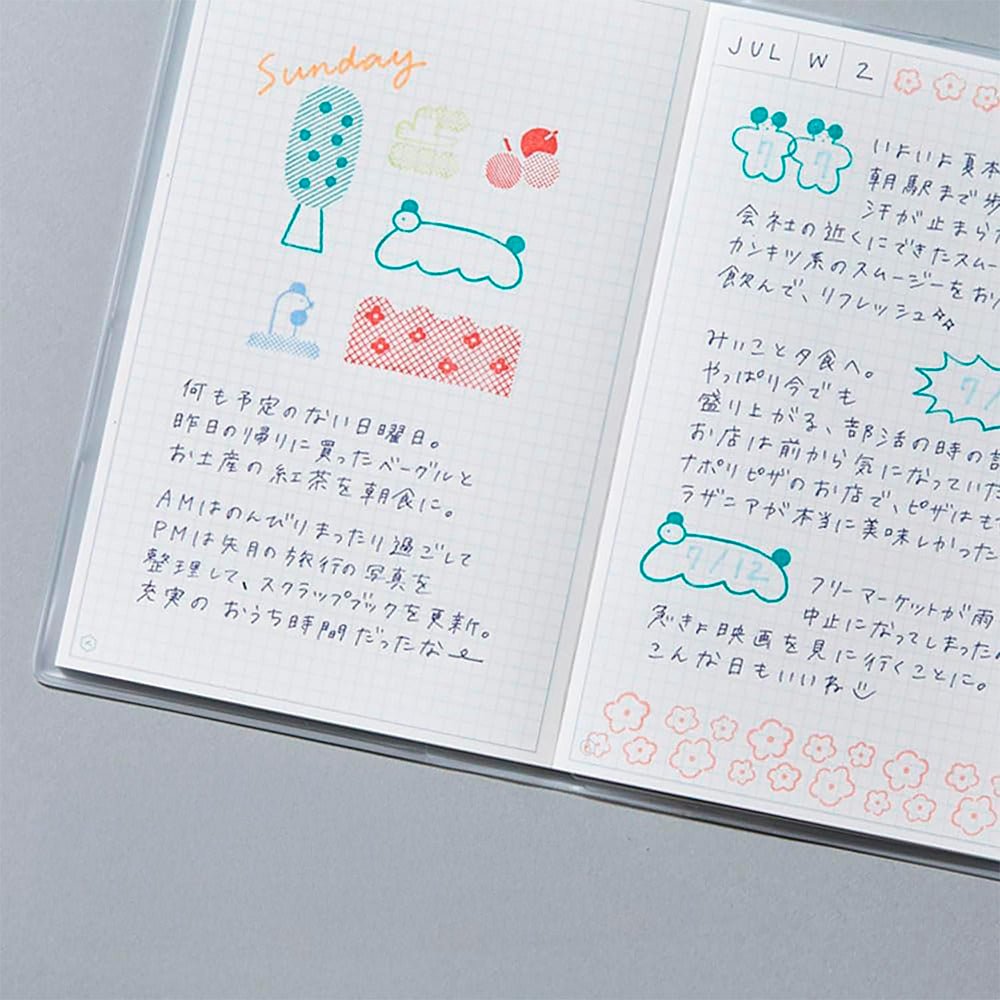 Sunday
何も予定のない日曜日。
昨日の帰りに買ったベーグルと
お土産の紅茶を朝食に。
AMはのんびりまったり過ごして
PMは先月の旅行の写真を
整理して、スクラップブックを更新。
充実の おうち時間だったな
JUL W 2
7 7
いよいよ夏本
朝駅まで歩
汗が止まら
会社の近くにできたスムー
カンキツ系のスムージーをお
飲んで、リフレッシュ
みいこと夕食へ。
やっぱり今でも
7/
盛り上がる、部活の時の話
お店は前から気になっていた
ナポリピザのお店で、ピザはも
ラザニアが本当に美味しかった
7/12
フリーマーケットが雨
中止になってしまった
急きょ映画を見に行くことに。
こんな日もいいね